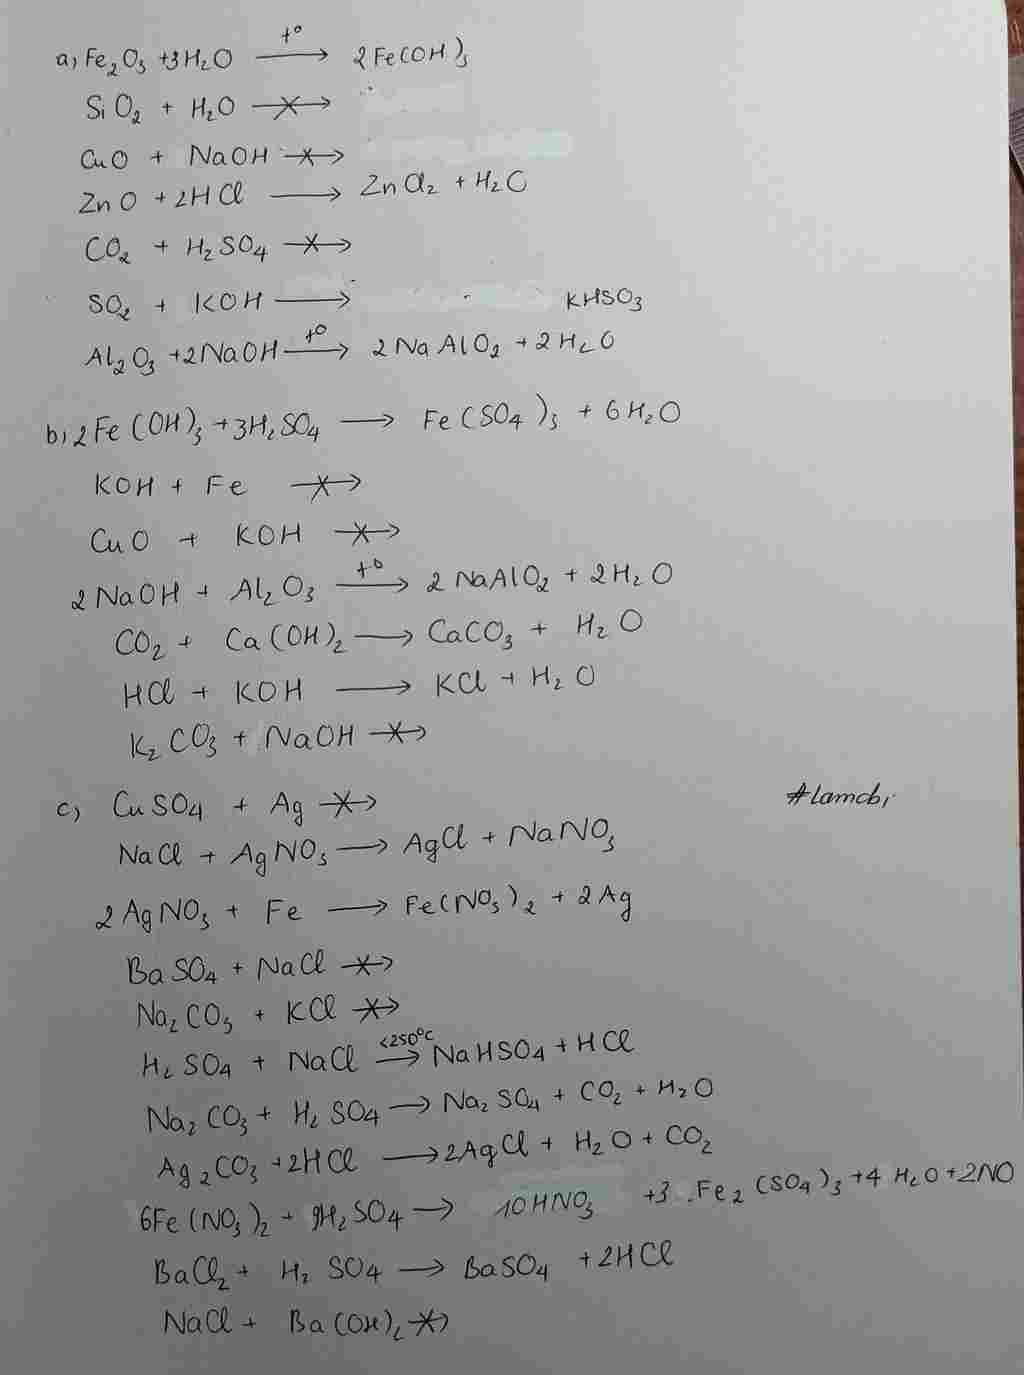 a) Fe₂O₃ +3H₂O —t°→ 2Fe(OH)₃
SiO₂ + H₂O —X→
CuO + NaOH —X→
ZnO + 2HCl → ZnCl₂ + H₂O
CO₂ + H₂SO₄ —X→
SO₂ + KOH → KHSO₃
Al₂O₃ +2NaOH —t°→ 2NaAlO₂ + 2H₂O
b) 2Fe(OH)₃ + 3H₂SO₄ → Fe(SO₄)₃ + 6H₂O
KOH + Fe —X→
CuO + KOH —X→
2NaOH + Al₂O₃ —t°→ 2NaAlO₂ + 2H₂O
CO₂ + Ca(OH)₂ → CaCO₃ + H₂O
HCl + KOH → KCl + H₂O
K₂CO₃ + NaOH —X→
c) CuSO₄ + Ag —X→
#lamcbi
NaCl + AgNO₃ → AgCl + NaNO₃
2AgNO₃ + Fe → Fe(NO₃)₂ + 2Ag
BaSO₄ + NaCl —X→
Na₂CO₃ + KCl —X→
H₂SO₄ + NaCl —<250°C→ NaHSO₄ + HCl
Na₂CO₃ + H₂SO₄ → Na₂SO₄ + CO₂ + H₂O
Ag₂CO₃ +2HCl → 2AgCl + H₂O + CO₂
6Fe(NO₃)₂ + 9H₂SO₄ → 10HNO₃ +3Fe₂(SO₄)₃ +4H₂O +2NO
BaCl₂ + H₂SO₄ → BaSO₄ +2HCl
NaCl + Ba(OH)₂ —X→